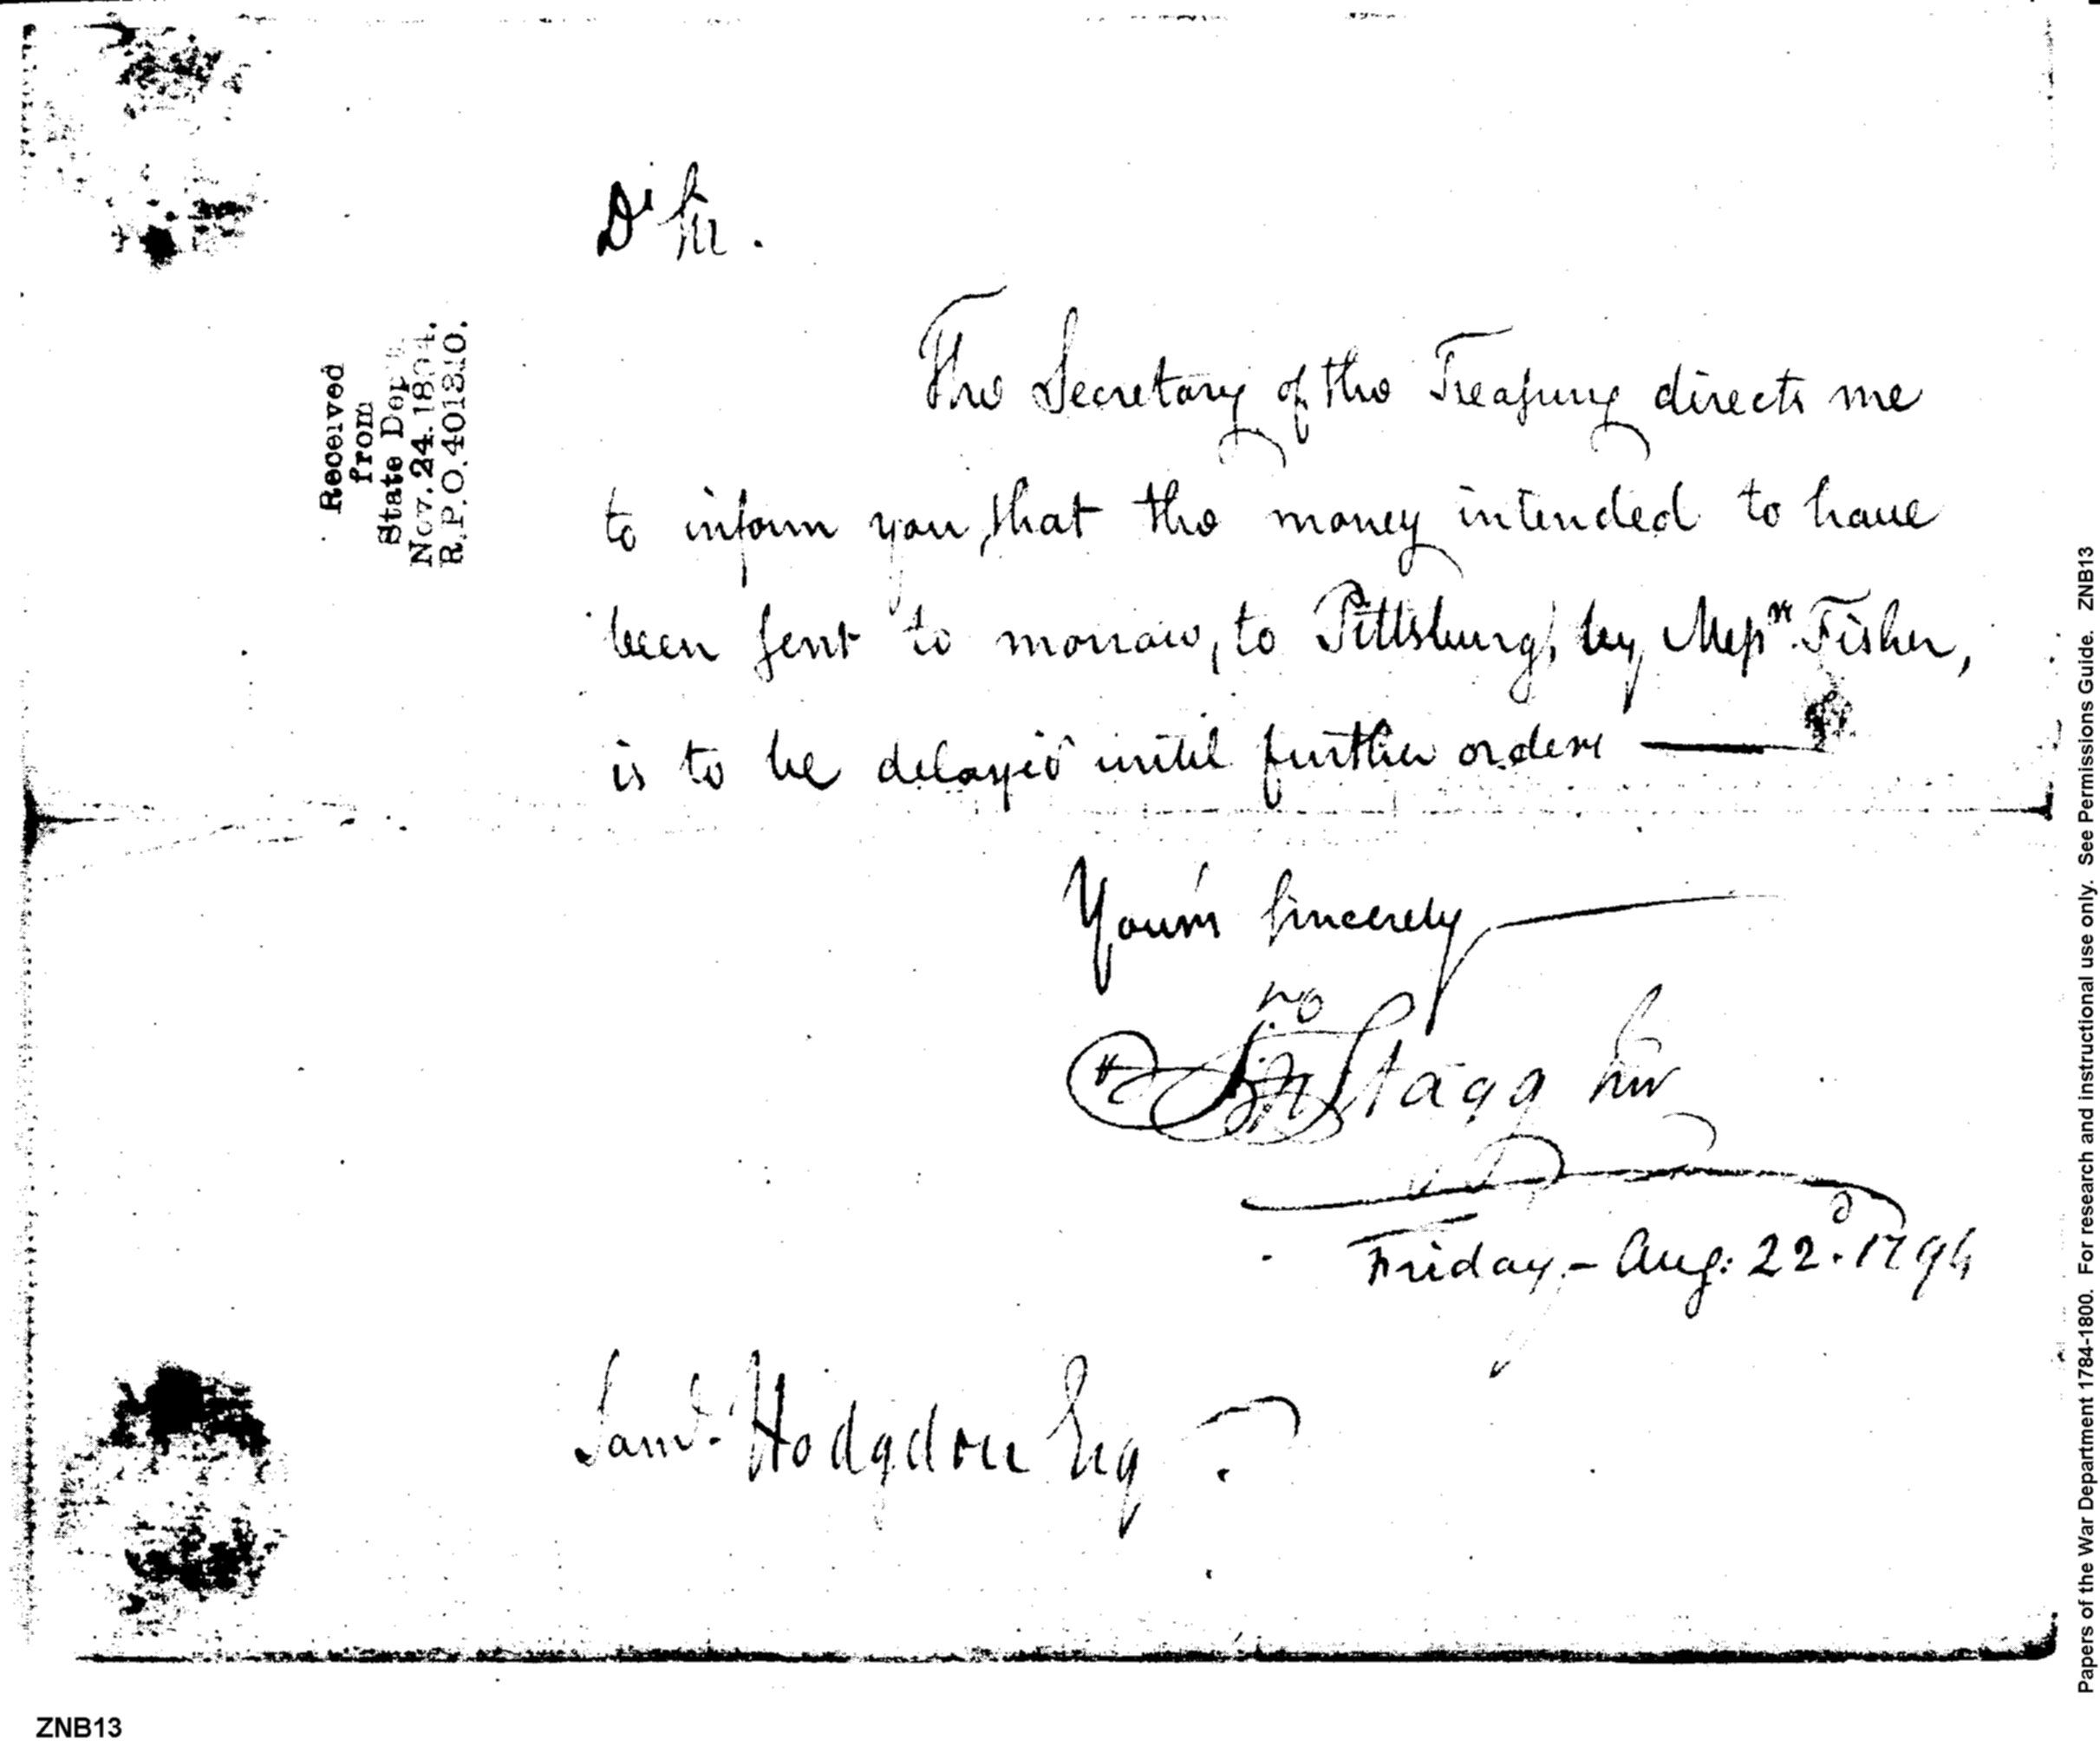 Dr Sir.
The Secretary of the Treasury directs me
to inform you, that the money intended to have
been sent to morrow, to Pittsburg, by Messrs. Fisher,
is to be delayed until further orders
Yours sincerely
Jno Stagg Junr
Friday - Aug: 22d. 1794
Saml. Hodgdon Esq
Received
from
State Dep't.
Nov. 24. 1894.
R.P.O. 401310.
Papers of the War Department 1784-1800. For research and instructional use only. See Permissions Guide. ZNB13
ZNB13